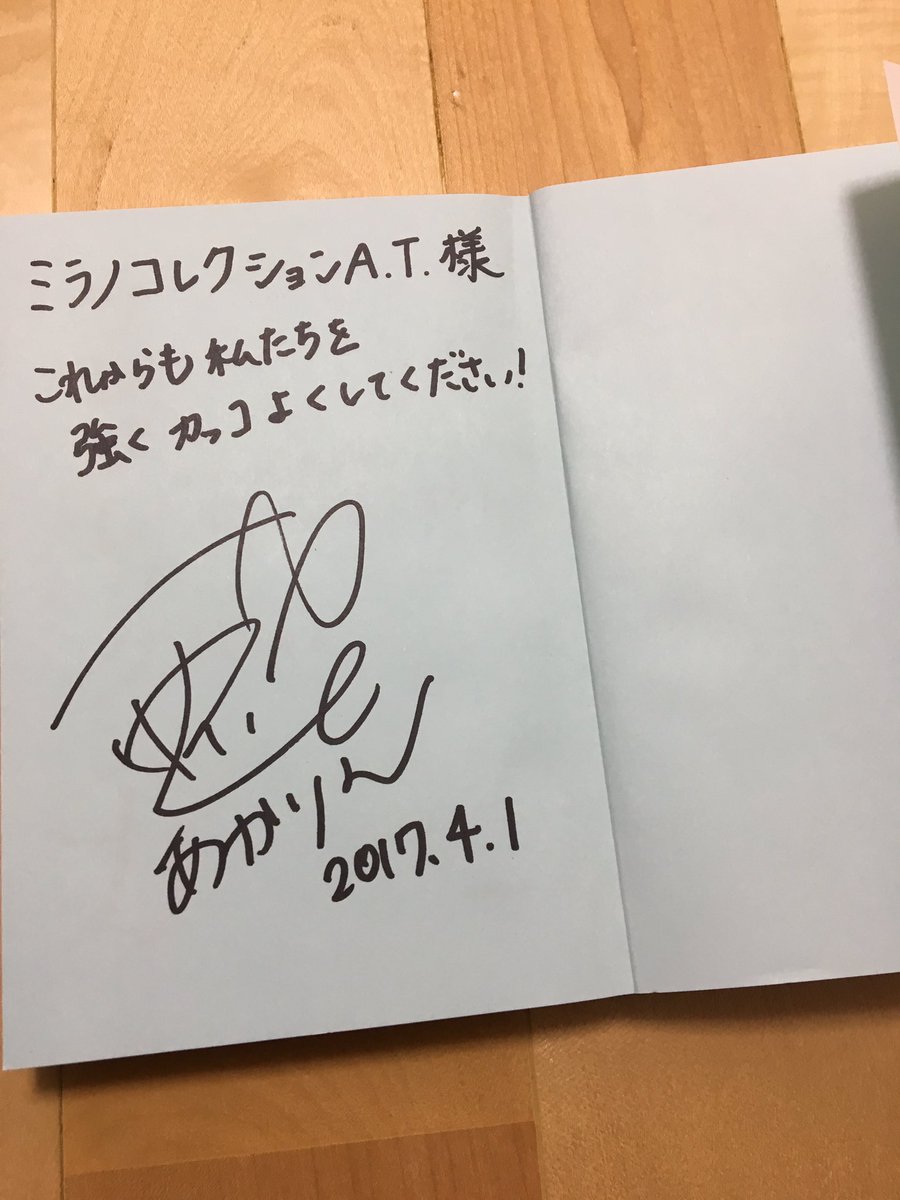 ミラノコレクションA.T.様
これからも私たちを
強くカッコよくしてください!
あかりん
2017.4.1